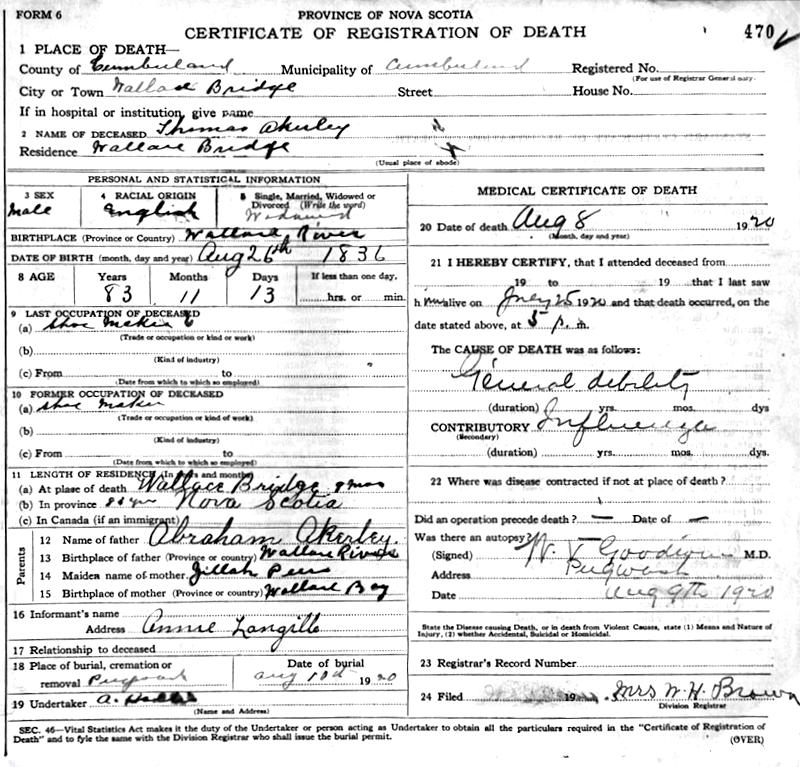 FORM 6
PROVINCE OF NOVA SCOTIA
CERTIFICATE OF REGISTRATION OF DEATH
470
1 PLACE OF DEATH—
County of Cumberland Municipality of Cumberland Registered No.
(For use of Registrar General only.
City or Town Wallace Bridge Street House No.
If in hospital or institution, give name
2 NAME OF DECEASED Thomas Akerley
Residence Wallace Bridge
(Usual place of abode)
PERSONAL AND STATISTICAL INFORMATION
3 SEX 4 RACIAL ORIGIN 5 Single, Married, Widowed or Divorced (Write the word)
Male English Widowed
BIRTHPLACE (Province or Country) Wallace River
DATE OF BIRTH (month, day and year) Aug 26th 1836
8 AGE Years Months Days If less than one day,
83 11 13 hrs. or min.
9 LAST OCCUPATION OF DECEASED
(a) Shoe Maker
(Trade or occupation or kind or work)
(b)
(Kind of industry)
(c) From to
(Date from which to which so employed)
10 FORMER OCCUPATION OF DECEASED
(a) Shoe Maker
(Trade or occupation or kind of work)
(b)
(Kind of industry)
(c) From to
(Date from which to which so employed)
11 LENGTH OF RESIDENCE (In years and months)
(a) At place of death Wallace Bridge mos
(b) In province yrs Nova Scotia
(c) In Canada (if an immigrant)
Parents
12 Name of father Abraham Akerley.
13 Birthplace of father (Province or Country) Wallace River
14 Maiden name of mother Zillah
15 Birthplace of mother (Province or country) Wallace Bay
16 Informant's name
Address Annie Langille
17 Relationship to deceased
18 Place of burial, cremation or removal Pugwash
Date of burial Aug 10th 1920
19 Undertaker A.
(Name and Address)
MEDICAL CERTIFICATE OF DEATH
20 Date of death Aug 8 1920
(Month, day and year)
21 I HEREBY CERTIFY, that I attended deceased from
19 to 19 that I last saw
h im alive on July 25 1920 and that death occurred, on the
date stated above, at 5 p. m.
The CAUSE OF DEATH was as follows:
General debility
(duration) yrs. mos. dys
CONTRIBUTORY Influenza
(Secondary)
(duration) yrs. mos. dys.
22 Where was disease contracted if not at place of death?
Did an operation precede death? — Date of —
Was there an autopsy?
(Signed) Goodwin M.D.
Address Pugwash
Date Aug 9th 1920
State the Disease causing Death, or in death from Violent Causes, state (1) Means and Nature of
Injury, (2) whether Accidental, Suicidal or Homicidal.
23 Registrar's Record Number
24 Filed 19 Mrs W. H. Brown
Division Registrar
SEC. 46—Vital Statistics Act makes it the duty of the Undertaker or person acting as Undertaker to obtain all the particulars required in the "Certificate of Registration of
Death" and to fyle the same with the Division Registrar who shall issue the burial permit.
(OVER)